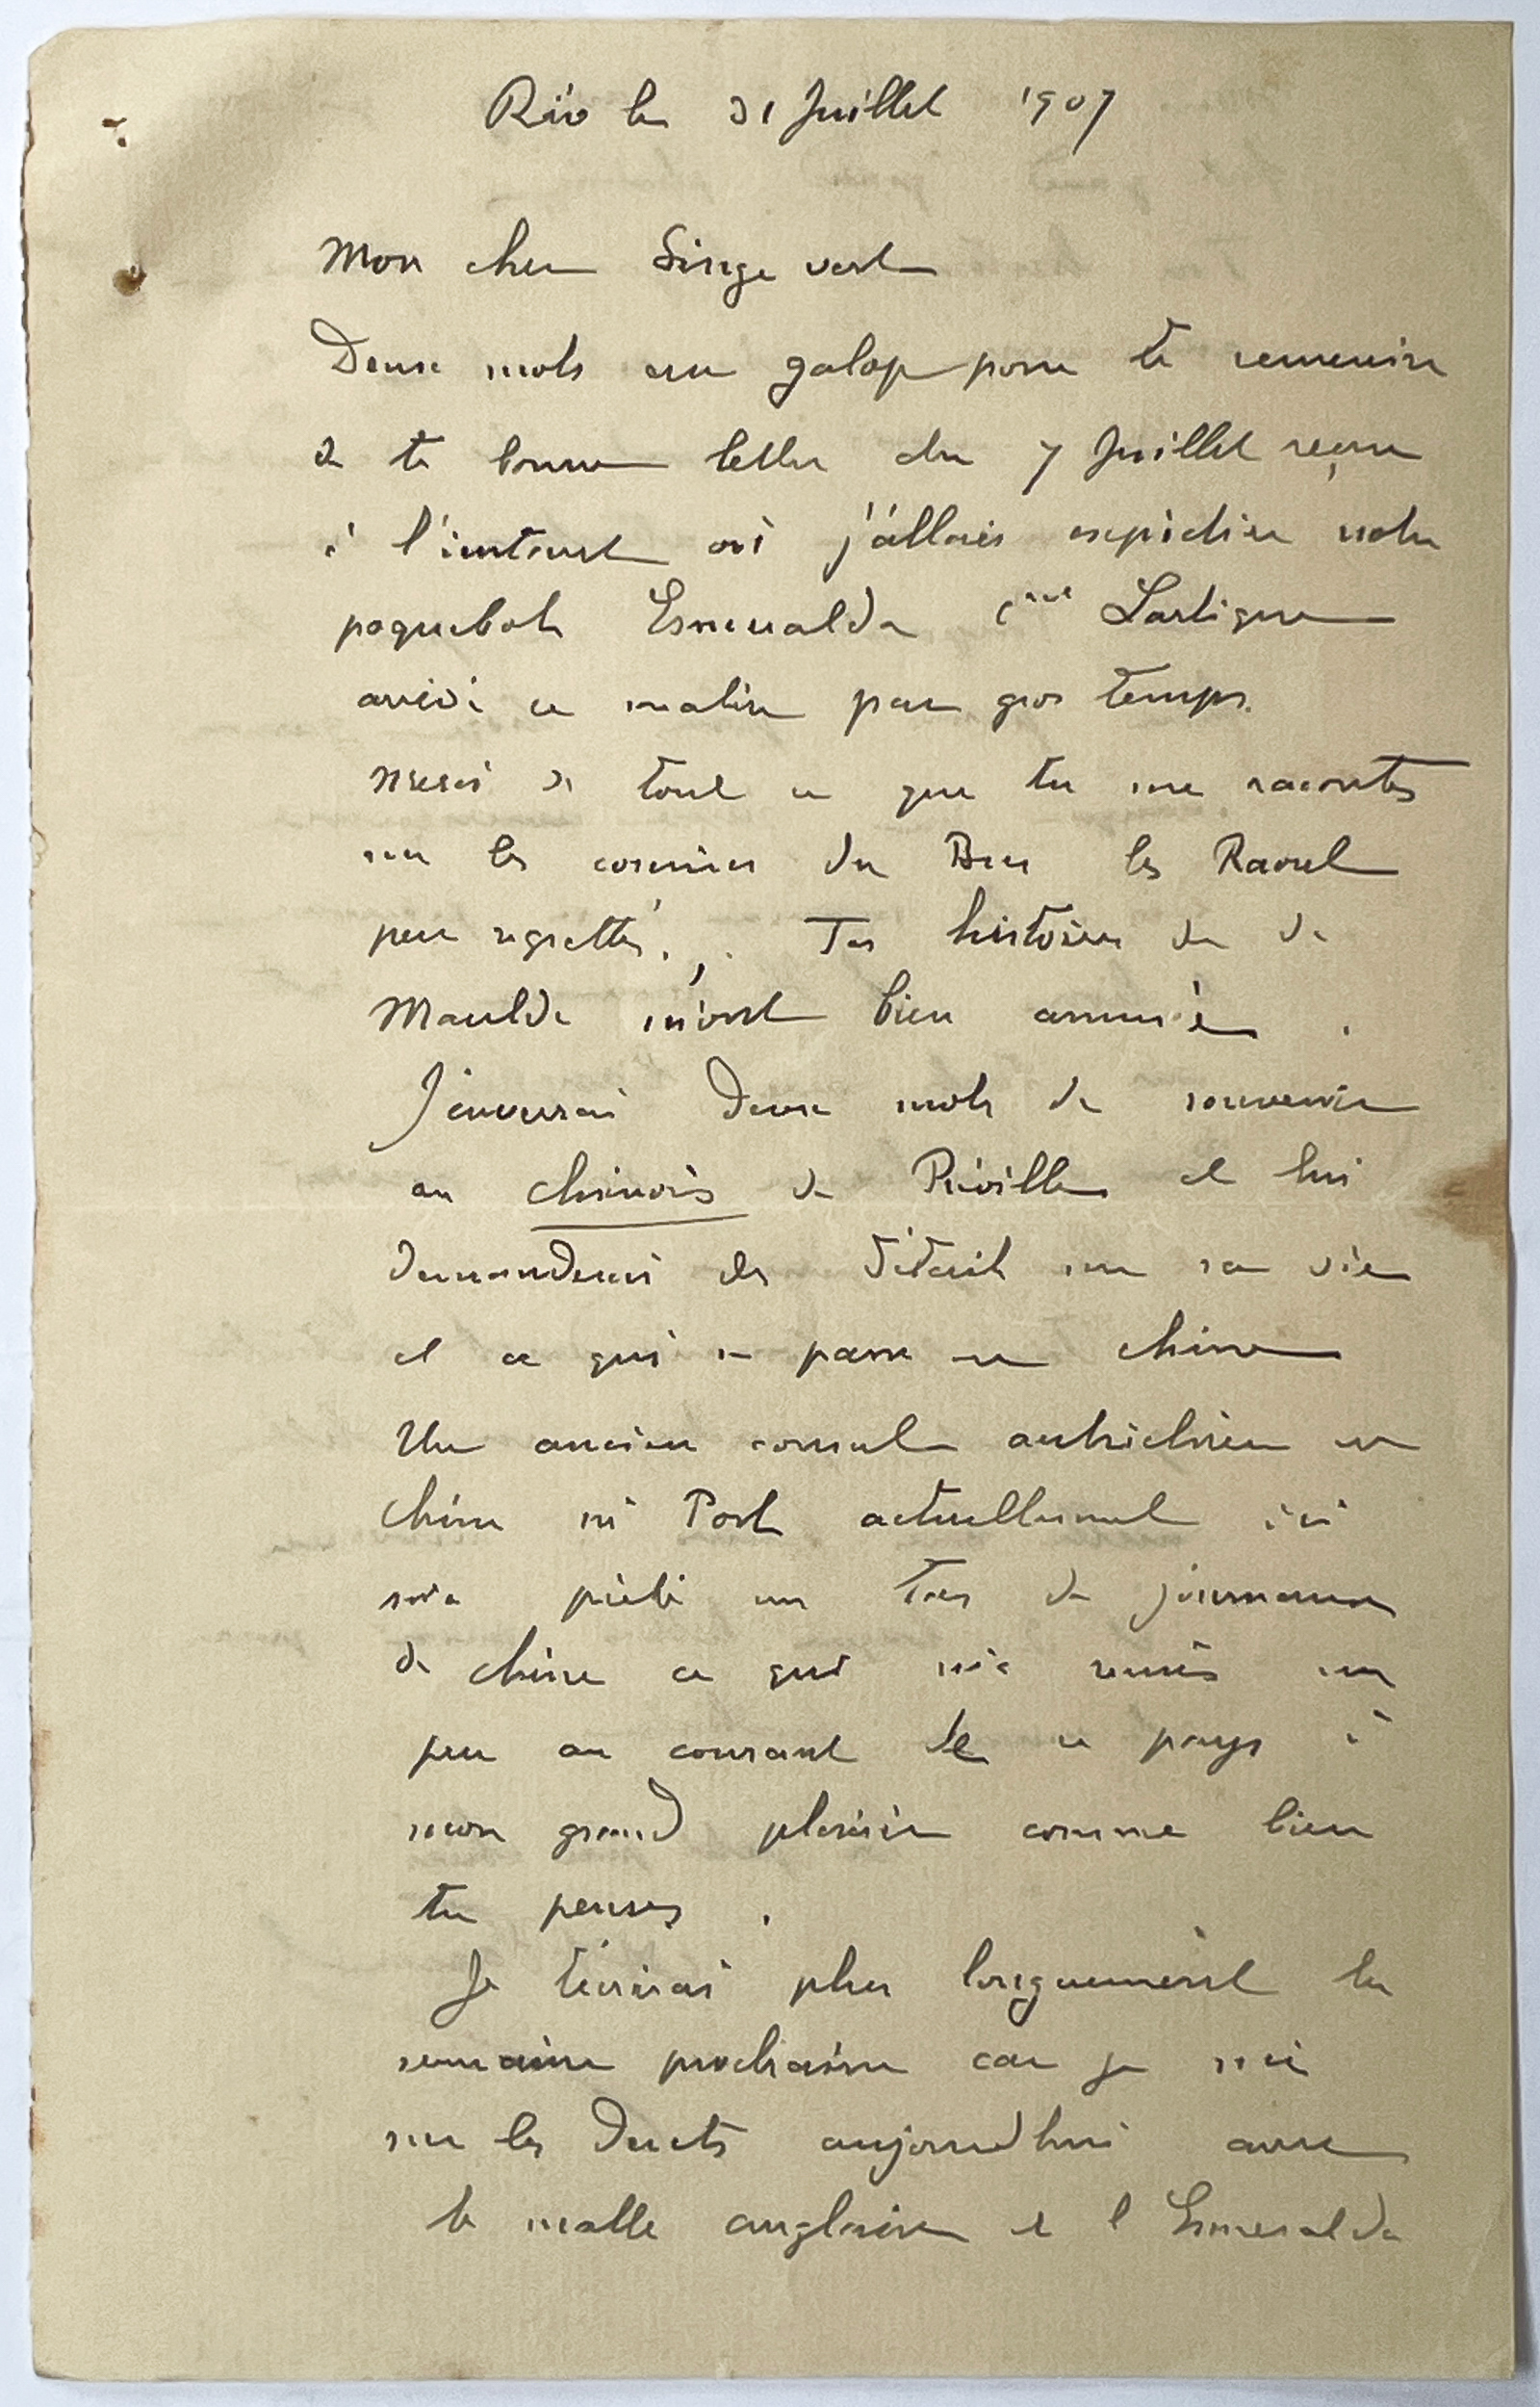 Rio le 31 Juillet 1907
Mon cher Singe vert
Deux mots au galop pour te remercier
de ta bonne lettre du 7 Juillet reçue
à l'instant où j'allais expédier notre
paquebot Esmeralda Cne Lartigue
arrivé ce matin par gros temps.
Merci de tout ce que tu me racontes
sur les courriers du les Raoul
peu regrettés... Tes histoires de de
Maulde m'ont bien amusé.
J'enverrai deux mots de souvenir
au chinois de Préville et lui
demanderai des détails sur sa vie
et ce qui se passe en chine
Un ancien consul autrichien en
chine Mr Post actuellement ici
m'a prêté un tas de journaux
de chine ce qui m'a remis un
peu au courant de ce pays à
mon grand plaisir comme bien
tu penses.
Je t'écrirai plus longuement la
semaine prochaine car je suis
sur les dents aujourd'hui avec
la malle anglaise et l'Esmeralda